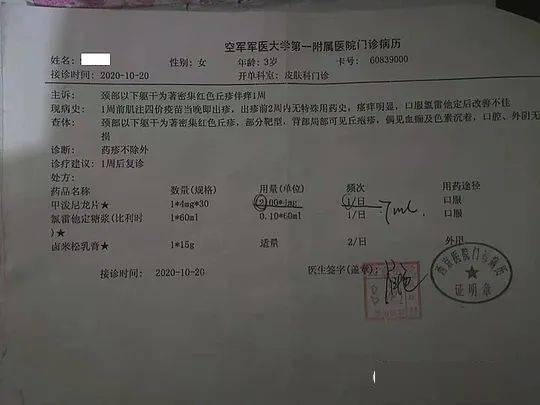 空军军医大学第一附属医院门诊病历
姓名: 性别: 女 年龄: 3岁 卡号: 60839000
接诊时间: 2020-10-20 开单科室: 皮肤科门诊
主诉: 颈部以下躯干为著密集红色丘疹伴痒1周
现病史: 1周前肌注四价疫苗当晚即出疹, 出疹前2周内无特殊用药史, 瘙痒明显, 口服氯雷他定后改善不佳
查体: 颈部以下躯干为著密集红色丘疹, 部分靶型, 背部局部可见丘疱疹, 偶见血痂及色素沉着, 口腔、外阴无
损
诊断: 药疹不除外
诊疗建议: 1周后复诊
处方:
药品名称 数量(规格) 用量(单位) 频次 用药途径
甲泼尼龙片★ 1*4mg*30 2.00*4mg 1/日 口服
氯雷他定糖浆(比利时 1*60ml 0.10*60ml 1/日 7ml. 口服
)★
卤米松乳膏★ 1*15g 适量 2/日 外用
接诊时间: 2020-10-20 医生签字(盖章):
西京医院门诊病历
证明章